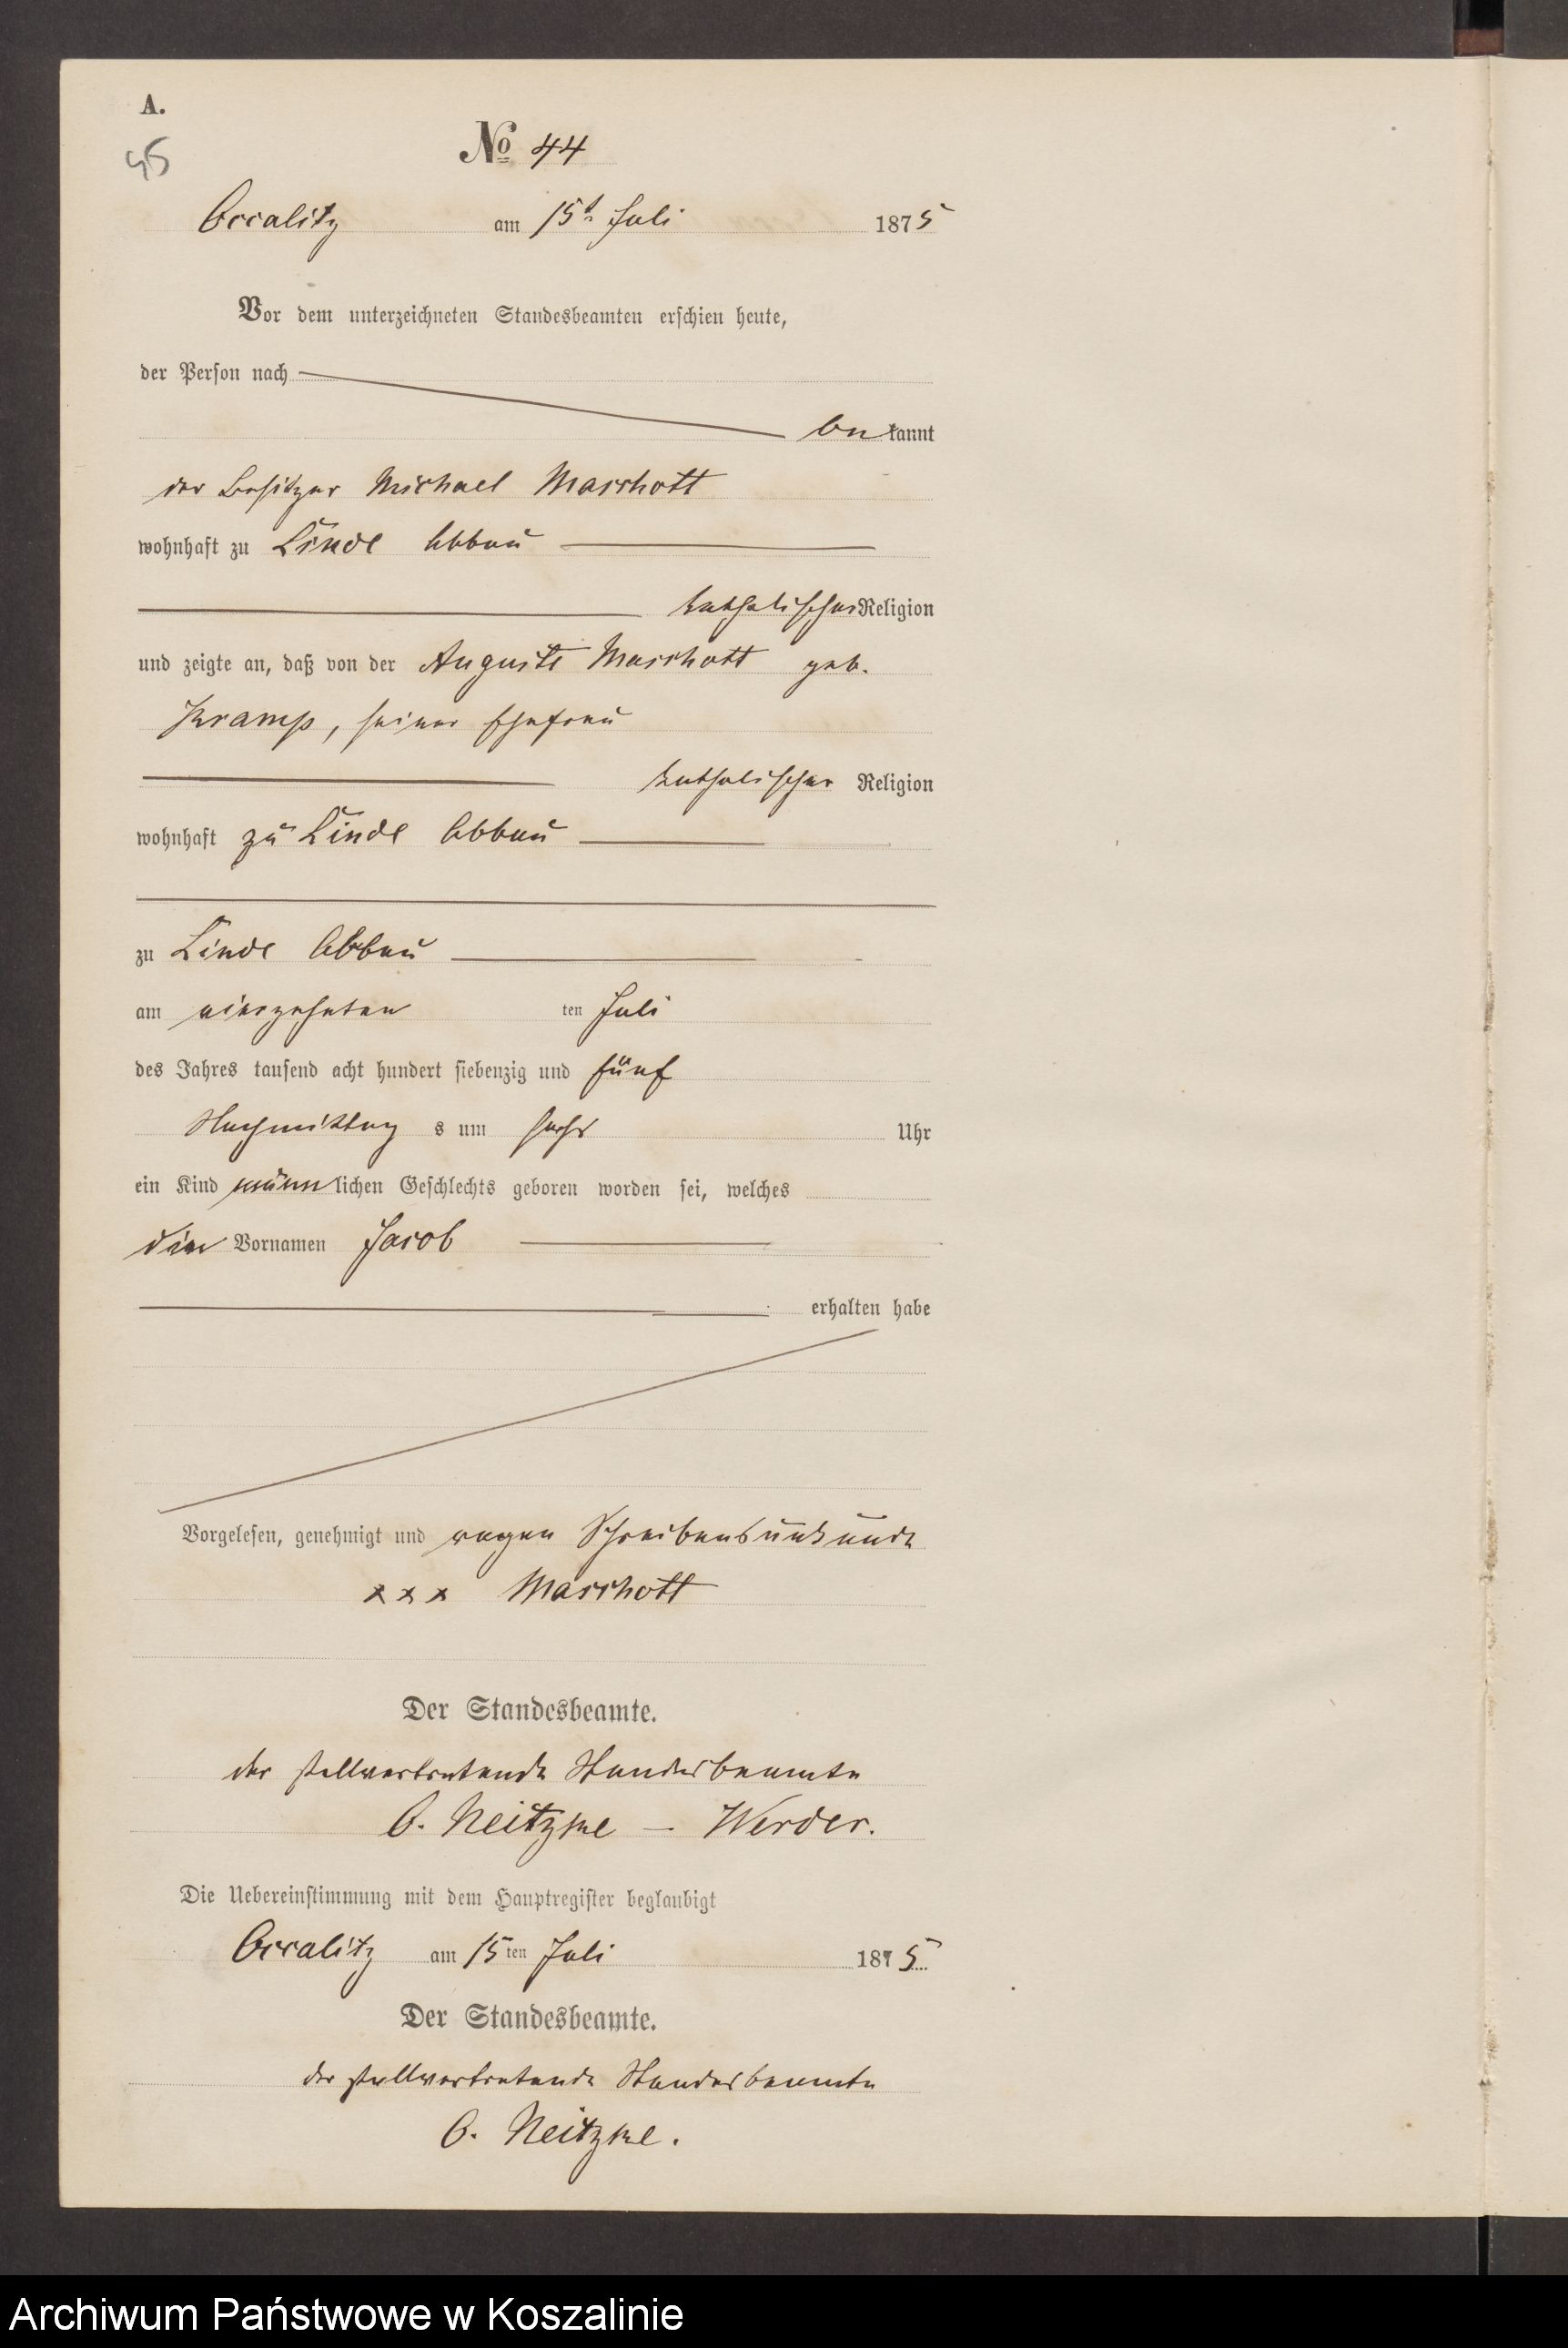 A.
45
No 44
Occalitz am 15t. Juli 1875
Vor dem unterzeichneten Standesbeamten erschien heute,
der Person nach
be kannt
der Besitzer Michael Marschott
wohnhaft zu Linde Abbau
katholischer Religion
und zeigte an, daß von der Auguste Marschott geb.
Kramp, seiner Ehefrau
katholischer Religion
wohnhaft zu Linde Abbau
zu Linde Abbau
am vierzehnten ten Juli
des Jahres tausend acht hundert siebenzig und fünf
Nachmittag s um sechs Uhr
ein Kind männlichen Geschlechts geboren worden sei, welches
den Vornamen Jacob
erhalten habe
Vorgelesen, genehmigt und wegen Schreibensunkunde
x x x Marschott
Der Standesbeamte.
der stellvertretende Standesbeamte
O. Neitzke – Werder.
Die Uebereinstimmung mit dem Hauptregister beglaubigt
Occalitz am 15ten Juli 1875
Der Standesbeamte.
der stellvertretende Standesbeamte
O. Neitzke.
Archiwum Państwowe w Koszalinie